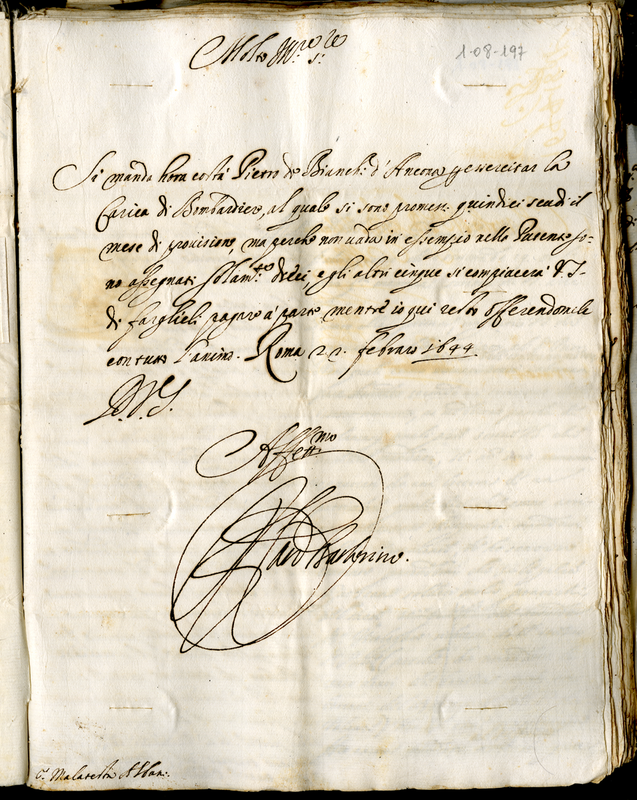 Molto Ill.re S.re
1-08-197
Si manda hora costà Pietro de Bianchi d'Ancona per essercitar la
Carica di Bombardiero, al quale si sono promessi quindici scudi il
mese di provisione, ma perche non vada in essempio nelle Patente so-
no assegnati solam.te dieci e gli altri cinque si compiacerà V.S.
di farglieli pagare à parte mentre io qui resto offerendomele
con tutto l'animo. Roma 22. febraro 1644.
D.V.S.
Aff.mo
Barberino.
C. Malatesta Alban: